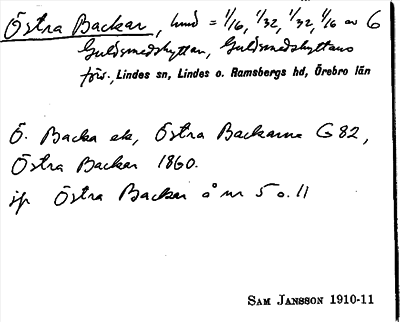 Östra Backar, hmd = 1/16, 1/32, 1/32, 1/16 av G
Guldsmedshyttan, Guldsmedshyttans
förs., Lindes sn, Lindes o. Ramsbergs hd, Örebro län
Ö. Backa ek, Östra Backarna G 82,
Östra Backar 1860.
jfr Östra Backar å nr 5 o. 11
SAM JANSSON 1910-11